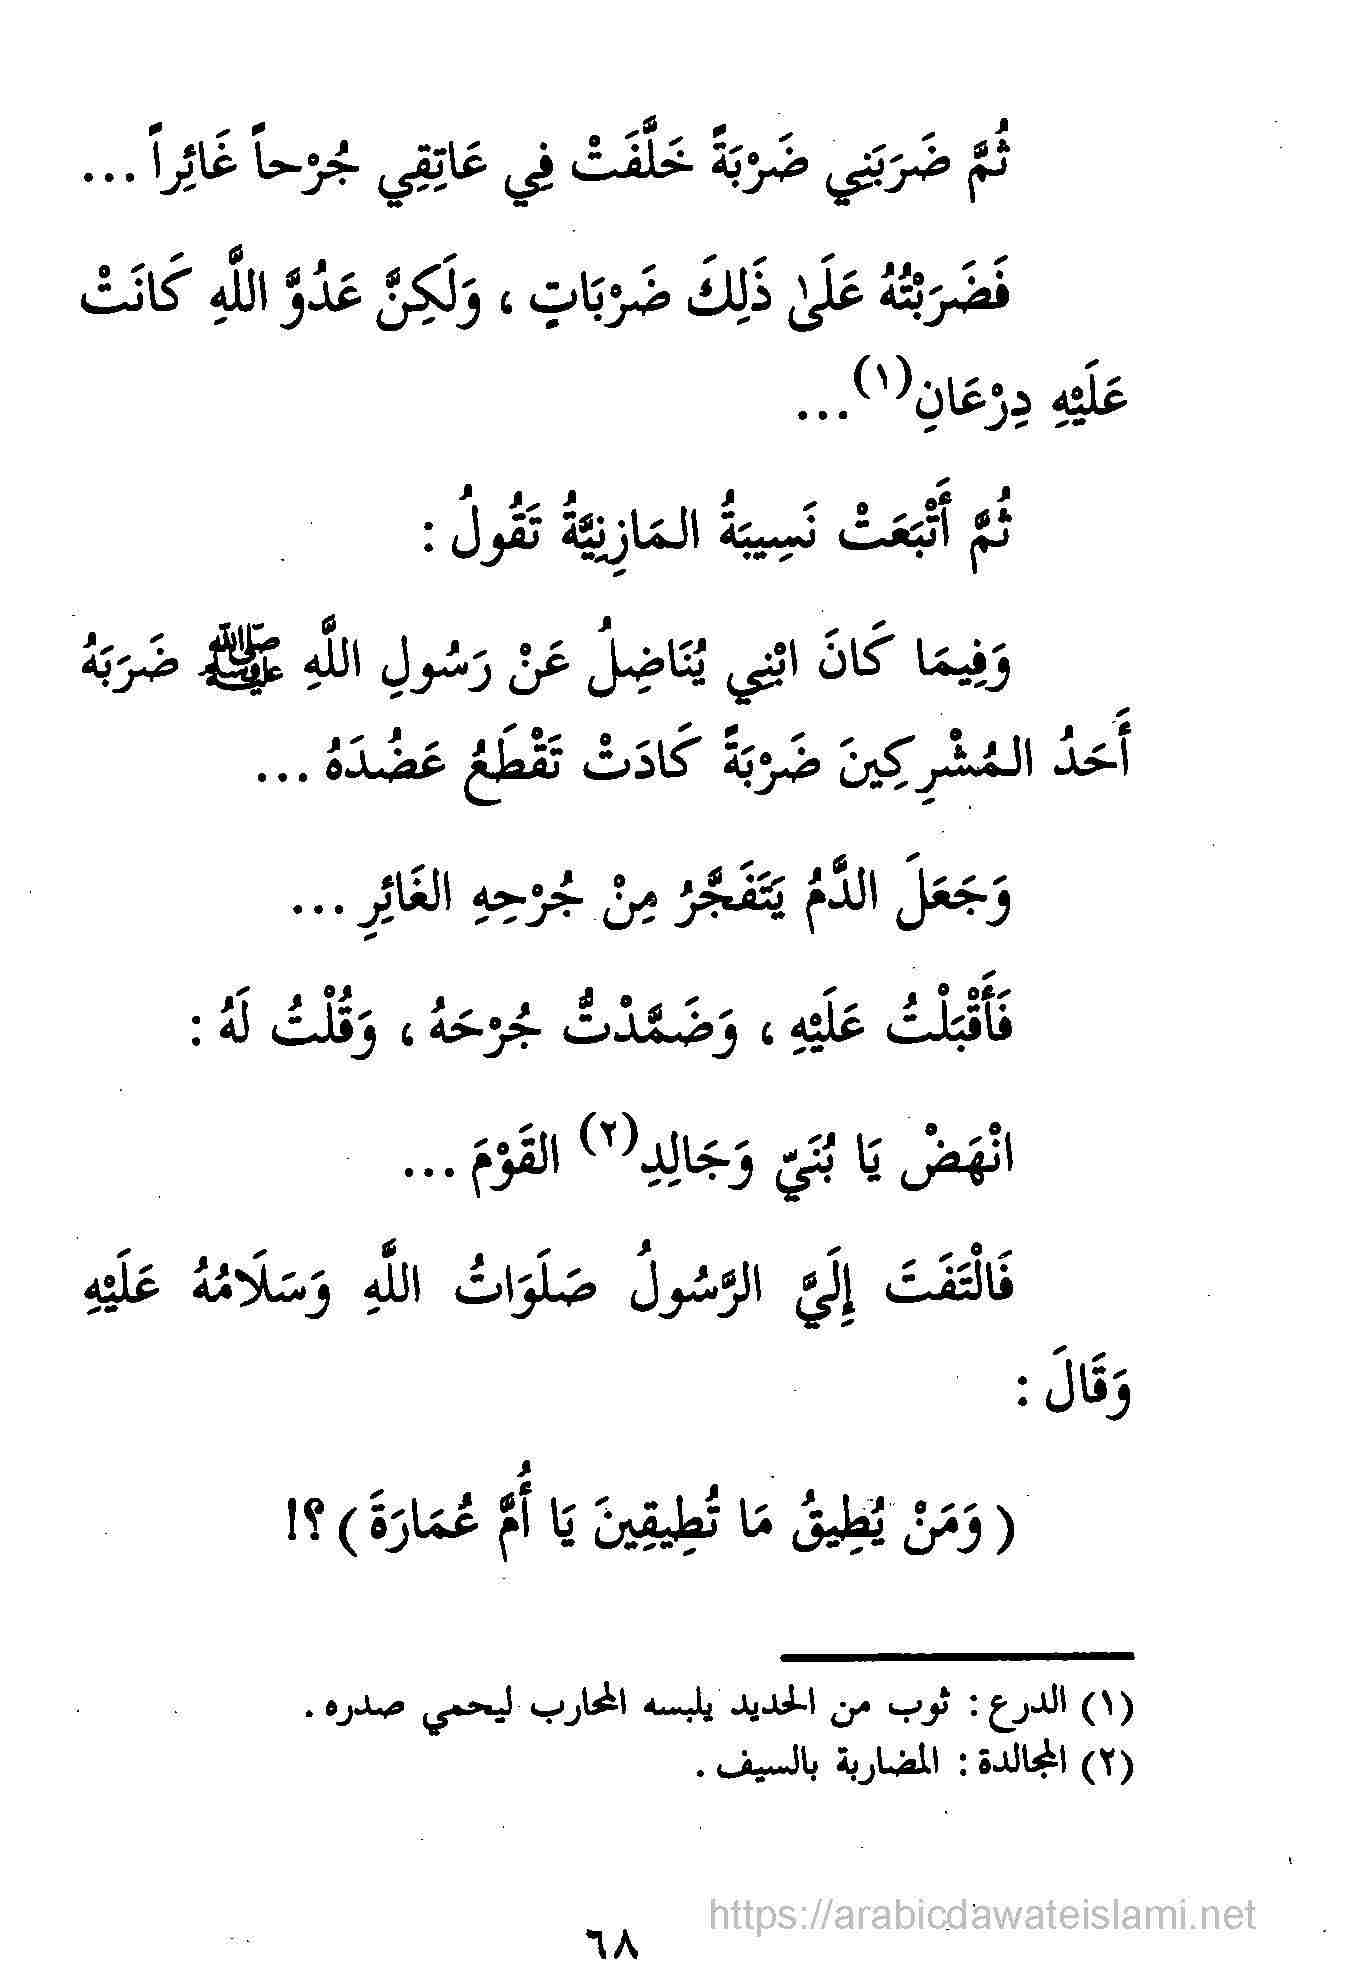 ثُمَّ ضَرَبَنِي ضَرْبَةً خَلَّفَتْ فِي عَاتِقِي جُرْحاً غَائِراً ...
فَضَرَبْتُهُ عَلَىٰ ذَلِكَ ضَرْبَاتٍ ، وَلَكِنَّ عَدُوَّ اللَّهِ كَانَتْ
عَلَيْهِ دِرْعَانِ(١)...
ثُمَّ أَتْبَعَتْ نَسِيبَةُ المَازِنِيَّةُ تَقُولُ :
وَفِيمَا كَانَ ابْنِي يُنَاضِلُ عَنْ رَسُولِ اللَّهِ ﷺ ضَرَبَهُ
أَحَدُ المُشْرِكِينَ ضَرْبَةً كَادَتْ تَقْطَعُ عَضُدَهُ ...
وَجَعَلَ الدَّمُ يَتَفَجَّرُ مِنْ جُرْحِهِ الغَائِرِ ...
فَأَقْبَلْتُ عَلَيْهِ ، وَضَمَّدْتُّ جُرْحَهُ ، وَقُلْتُ لَهُ :
انْهَضْ يَا بُنَيّ وَجَالِدِ(٢) القَوْمَ ...
فَالْتَفَتَ إِلَيَّ الرَّسُولُ صَلَوَاتُ اللَّهِ وَسَلَامُهُ عَلَيْهِ
وَقَالَ :
( وَمَنْ يُطِيقُ مَا تُطِيقِينَ يَا أُمَّ عُمَارَةَ ) ؟!
(١) الدرع : ثوب من الحديد يلبسه المحارب ليحمي صدره .
(٢) المجالدة : المضاربة بالسيف .
https://arabicdawateislami.net
٦٨